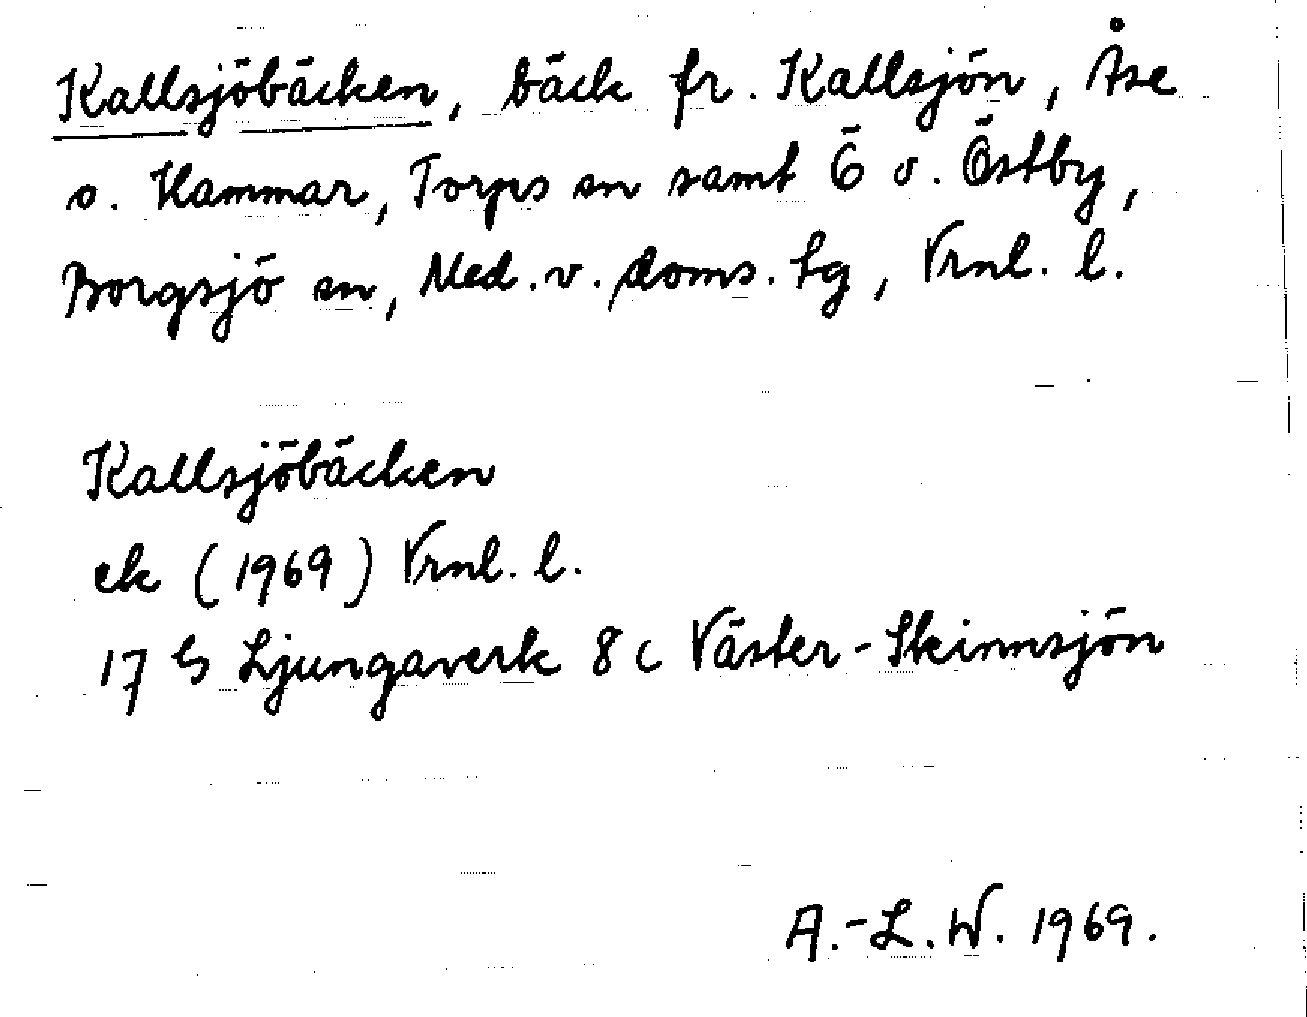 Kallsjöbäcken, bäck fr. Kallsjön, Åse
o. Hammar, Torps sn samt Ö o. Östby,
Borgsjö sn, Med. v. doms. tg, Vrnl. l.
Kallsjöbäcken
ek (1969) Vrnl. l.
17 G Ljungaverk 8 c Väster-Skinnsjön
A.-L. W. 1969.